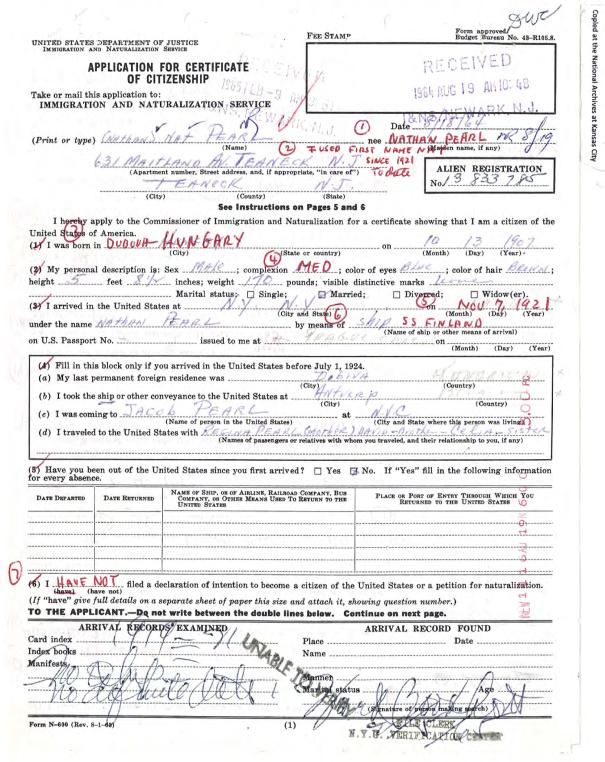 DWC
Form approved
Budget Bureau No. 43-R105.8.
UNITED STATES DEPARTMENT OF JUSTICE
IMMIGRATION AND NATURALIZATION SERVICE
FEE STAMP
APPLICATION FOR CERTIFICATE
OF CITIZENSHIP
RECEIVED
1964 AUG 19 AM 10:48
I&NS NEWARK N.J.
RECEIVED
1965 FEB -9
INS. NEWARK, N.J.
Take or mail this application to:
IMMIGRATION AND NATURALIZATION SERVICE
Date
(Print or type) (NATHAN) NAT PEARL ① nee NATHAN PEARL 8/19
(Name) (Maiden name, if any)
② USED FIRST NAME NAT
SINCE 1921
TO Date
631 MAITLAND AV. TEANECK N.J.
(Apartment number, Street address, and, if appropriate, "in care of")
TEANECK N.J.
(City) (County) (State)
ALIEN REGISTRATION
No. 13 833 785
See Instructions on Pages 5 and 6
I hereby apply to the Commissioner of Immigration and Naturalization for a certificate showing that I am a citizen of the
United States of America.
③
(1) I was born in DUBOVA - HUNGARY on 10 13 1907
(City) (State or country) (Month) (Day) (Year)
④
(2) My personal description is: Sex MALE; complexion MED; color of eyes BLUE; color of hair BROWN;
height 5 feet 8 1/2 inches; weight 170 pounds; visible distinctive marks
Marital status: ☐ Single; ☑ Married; ☐ Divorced; ☐ Widow(er).
(3) I arrived in the United States at N.Y N.Y. on ⑤ NOV 7, 1921
(City and State) (Month) (Day) (Year)
under the name NATHAN PEARL by means of ⑥ SHIP SS FINLAND
(Name of ship or other means of arrival)
on U.S. Passport No. issued to me at on
(Month) (Day) (Year)
(4) Fill in this block only if you arrived in the United States before July 1, 1924.
(a) My last permanent foreign residence was DUBOVA
(City) (Country)
(b) I took the ship or other conveyance to the United States at ANTWERP
(City) (Country)
(c) I was coming to JACOB PEARL at N.Y.C
(Name of person in the United States) (City and State where this person was living)
(d) I traveled to the United States with REGINA PEARL (MOTHER) DAVID - BROTHER - CELIA - SISTER
(Names of passengers or relatives with whom you traveled, and their relationship to you, if any)
(5) Have you been out of the United States since you first arrived? ☐ Yes ☑ No. If "Yes" fill in the following information
for every absence.
DATE DEPARTED DATE RETURNED NAME OF SHIP, OR OF AIRLINE, RAILROAD COMPANY, BUS COMPANY, OR OTHER MEANS USED TO RETURN TO THE UNITED STATES PLACE OR PORT OF ENTRY THROUGH WHICH YOU RETURNED TO THE UNITED STATES
⑦
(6) I HAVE NOT filed a declaration of intention to become a citizen of the United States or a petition for naturalization.
(have) (have not)
(If "have" give full details on a separate sheet of paper this size and attach it, showing question number.)
TO THE APPLICANT.—Do not write between the double lines below. Continue on next page.
ARRIVAL RECORDS EXAMINED
Card index
Index books
Manifests
UNABLE TO
ARRIVAL RECORD FOUND
Place Date
Name
Manner
Marital status Age
(Signature of person making search)
FILE CLERK
N.Y.C. VERIFICATION CENTER
Form N-600 (Rev. 8-1-62)
(1)
Copied at the National Archives at Kansas City